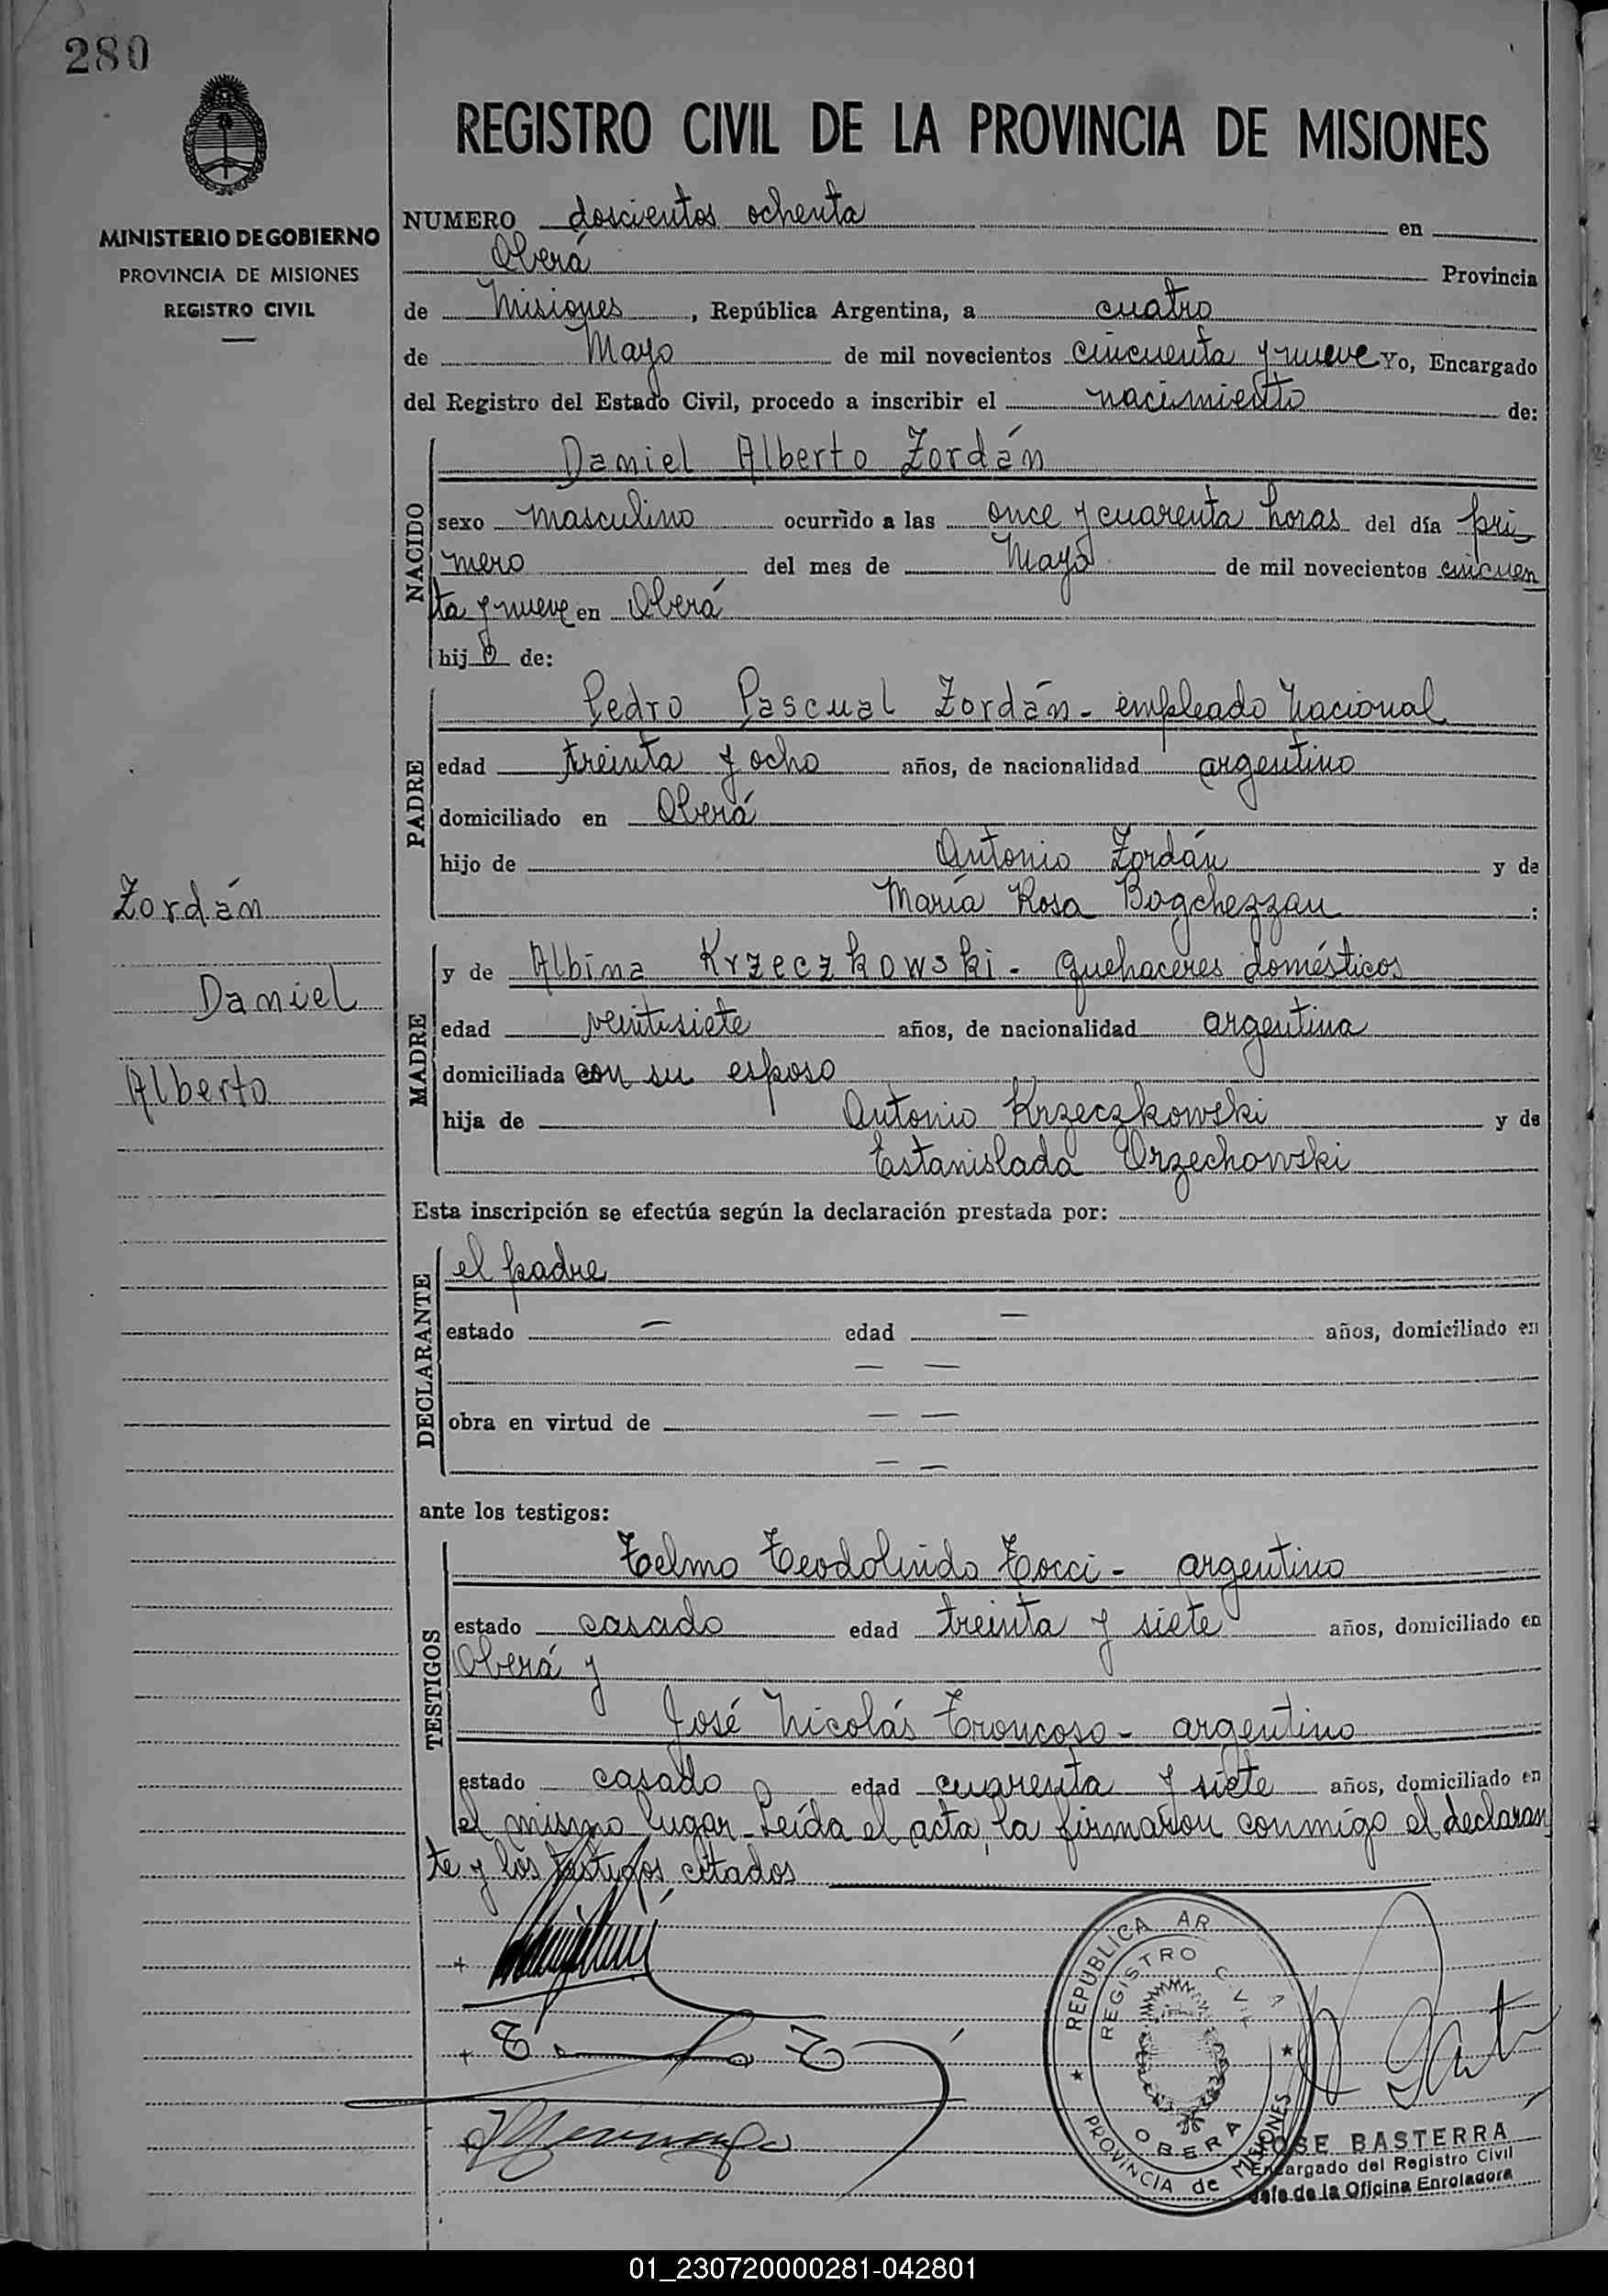 280
MINISTERIO DE GOBIERNO
PROVINCIA DE MISIONES
REGISTRO CIVIL
REGISTRO CIVIL DE LA PROVINCIA DE MISIONES
NUMERO doscientos ochenta en
Oberá Provincia
de Misiones, República Argentina, a cuatro
de Mayo de mil novecientos cincuenta y nueve Yo, Encargado
del Registro del Estado Civil, procedo a inscribir el nacimiento de:
NACIDO
Daniel Alberto Zordán
sexo masculino ocurrido a las once y cuarenta horas del día pri
mero del mes de Mayo de mil novecientos cincuen
ta y nueve en Oberá
hijo de:
PADRE
Pedro Pascual Zordán - empleado Nacional
edad treinta y ocho años, de nacionalidad argentino
domiciliado en Oberá
hijo de Antonio Zordán y de
María Rosa Bogchezzan :
MADRE
y de Albina Krzeczkowski - quehaceres domésticos
edad veintisiete años, de nacionalidad argentina
domiciliada con su esposo
hija de Antonio Krzeczkowski y de
Estanislada Orzechowski
Zordán
Daniel
Alberto
Esta inscripción se efectúa según la declaración prestada por:
DECLARANTE
el padre
estado — edad — años, domiciliado en
— —
obra en virtud de — —
— —
ante los testigos:
TESTIGOS
Telmo Teodolindo Tocci - argentino
estado casado edad treinta y siete años, domiciliado en
Oberá y
José Nicolás Troncoso - argentino
estado casado edad cuarenta y siete años, domiciliado en
el mismo lugar. Leída el acta, la firmaron conmigo el declaran
te y los testigos citados
REPÚBLICA AR
REGISTRO CIVIL
OBERA
PROVINCIA de MISIONES
JOSE BASTERRA
Encargado del Registro Civil
Jefe de la Oficina Enroladora
01_230720000281-042801